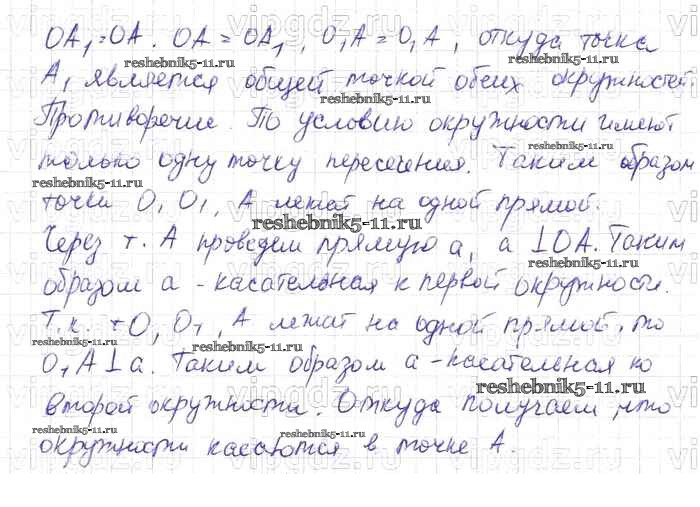 OA₁=OA. OA = OA₁, O₁A = O₁A, откуда точка
A₁ является общей точкой обеих окружностей.
Противоречие. По условию окружности имеют
только одну точку пересечения. Таким образом
точки O, O₁, A лежат на одной прямой.
Через т. A проведем прямую a, a ⊥ OA. Таким
образом a - касательная к первой окружности.
Т.к. т O, O₁, A лежат на одной прямой, то
O₁A ⊥ a. Таким образом a - касательная ко
второй окружности. Откуда получаем, что
окружности касаются в точке A.
reshebnik5-11.ru
reshebnik5-11.ru
reshebnik5-11.ru
reshebnik5-11.ru
reshebnik5-11.ru
reshebnik5-11.ru
reshebnik5-11.ru
reshebnik5-11.ru
reshebnik5-11.ru
reshebnik5-11.ru
reshebnik5-11.ru
reshebnik5-11.ru
vipgdz.ru